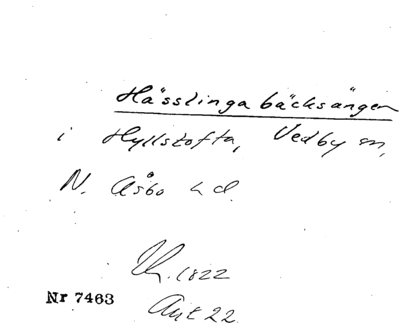 Hässlinga bäcksängen
i Hyllstofta, Vedby sn,
N. Åsbo hd.
Kh. 1822
Akt 22
Nr 7463